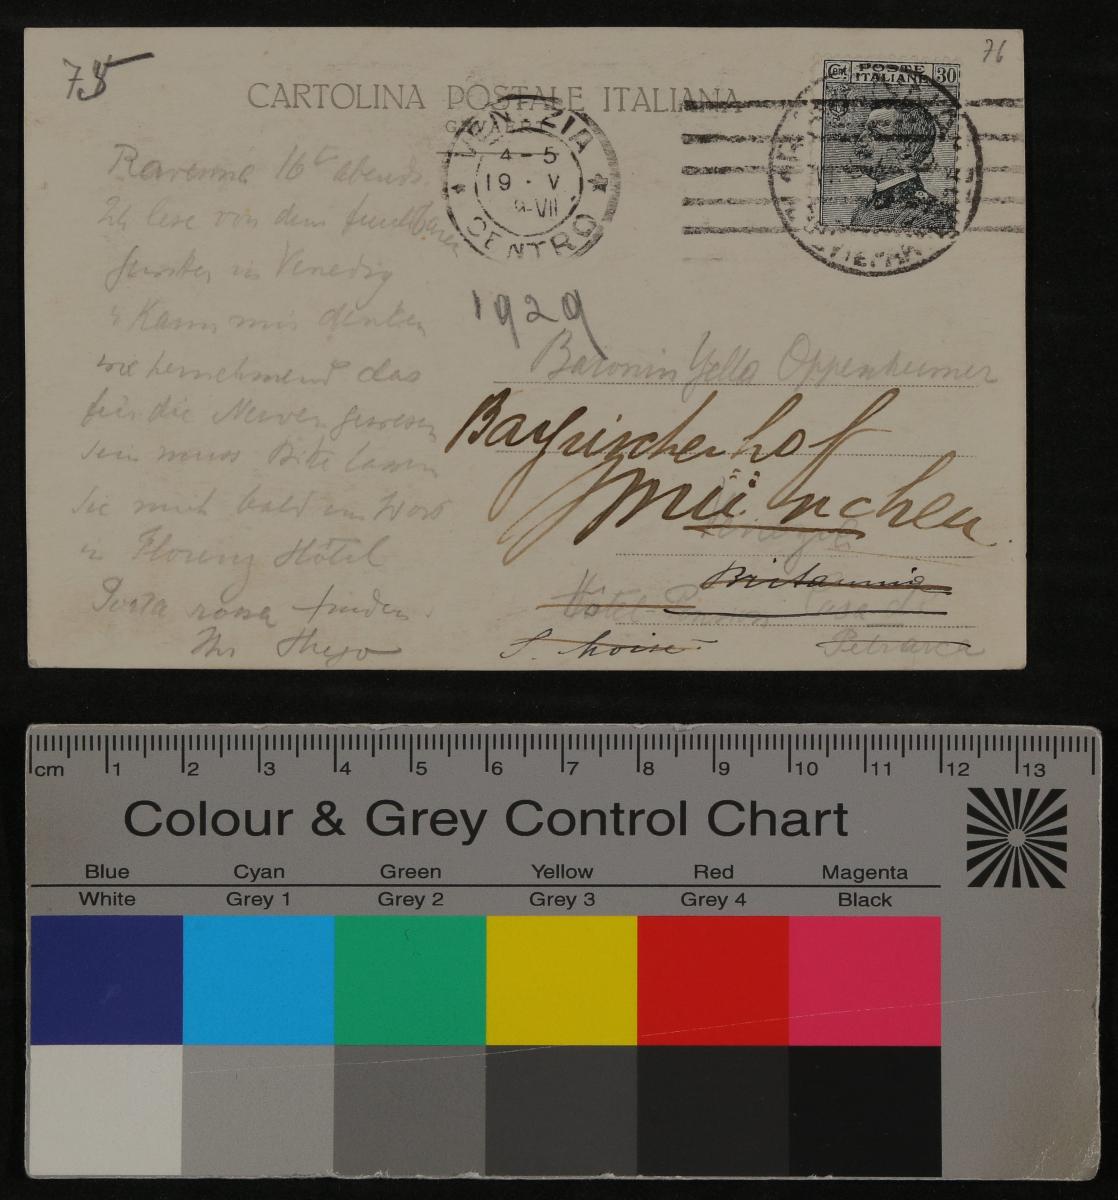 75
76
CARTOLINA POSTALE ITALIANA
Cent. POSTE ITALIANE 30
VENEZIA
4-5
19 - V
9-VII
CENTRO
Ravenna 16t abends.
Ich lese von dem furchtbaren
in Venedig
Kann mir denken
wie das
für die Nerven gewesen
sein muss Bitte lassen
Sie mich bald ein Wort
in Florenz Hôtel
Porta rossa finden.
Ihr
1929
Baronin Yella Oppenheimer
Bayrischerhof
München
Venezia
Britannia
Hôtel Pension Casa
Petrarca
S. Moisè
cm 1 2 3 4 5 6 7 8 9 10 11 12 13
Colour & Grey Control Chart
Blue Cyan Green Yellow Red Magenta
White Grey 1 Grey 2 Grey 3 Grey 4 Black